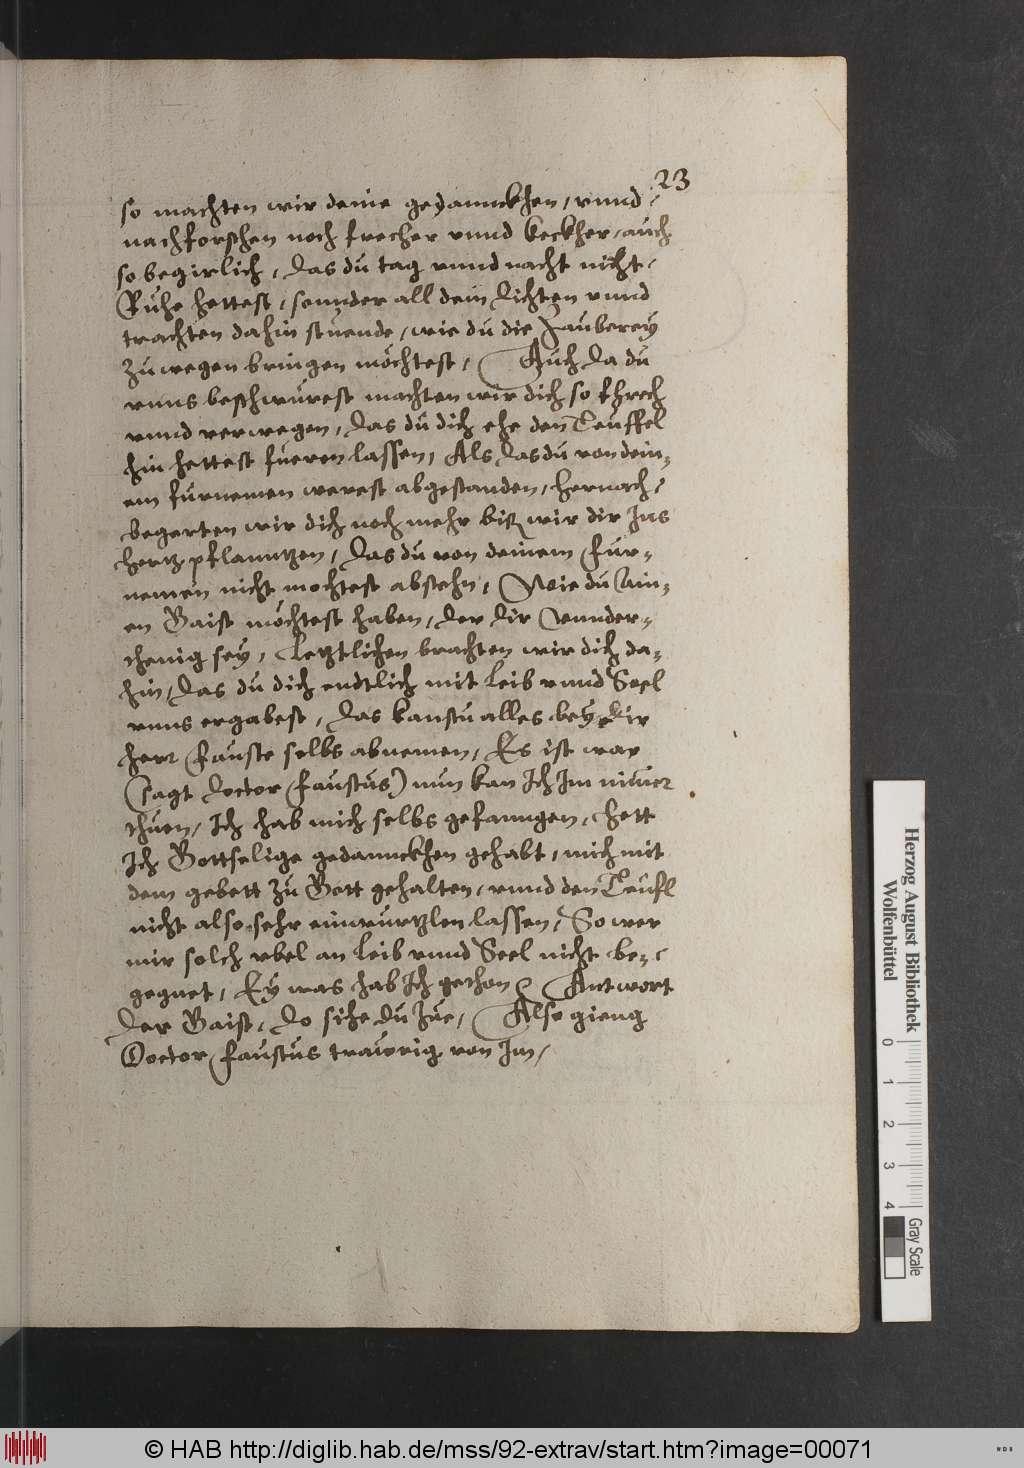 23
so machten wir deine gedannckhen, vnnd
nachforschen noch frecher vnnd keckher, auch
so begirlich, das du tag vnnd nacht nicht
Ruhe hettest, sonnder all dein dichten vnnd
trachten dahin stuende, wie du die Zauberey
zu wegen bringen möchtest, Auch da du
vnns beschwurest machten wir dich so threch
vnnd verwegen, das du dich ehe den Teuffel
hin hettest fueren lassen, Als das du von dein-
em furnemen werest abgestanden, hernach
begerten wir dich noch mehr biß wir dir Ins
hertz pflanntzen, das du von deinem fur-
nemen nicht mochtest abstehn, Wie du ain-
en Gaist möchtest haben, der dir vnnder-
thenig sey, Letztlichen brachten wir dich da-
hin, das du dich endtlich mit leib vnnd Seel
vnns ergabest, das kanstu alles bey dir
herr Fauste selbs abnemen, Es ist war
(sagt doctor Faustus) nun kan Ich Im nimer
thuen, Ich hab mich selbs gefanngen, hett
Ich Gottselige gedannckhen gehabt, mich mit
dem gebett zu Gott gehalten, vnnd den Teufl
nicht also sehr einwurtzlen lassen, So wer
mir solch vbel an leib vnnd Seel nicht be-
gegnet, Ey was hab Ich gethon? Antwort
der Gaist, do sihe du Zue, Also gieng
Doctor Faustus trawrig von Im,
Herzog August Bibliothek
Wolfenbüttel
0 1 2 3 4
Gray Scale
© HAB http://diglib.hab.de/mss/92-extrav/start.htm?image=00071
WDB